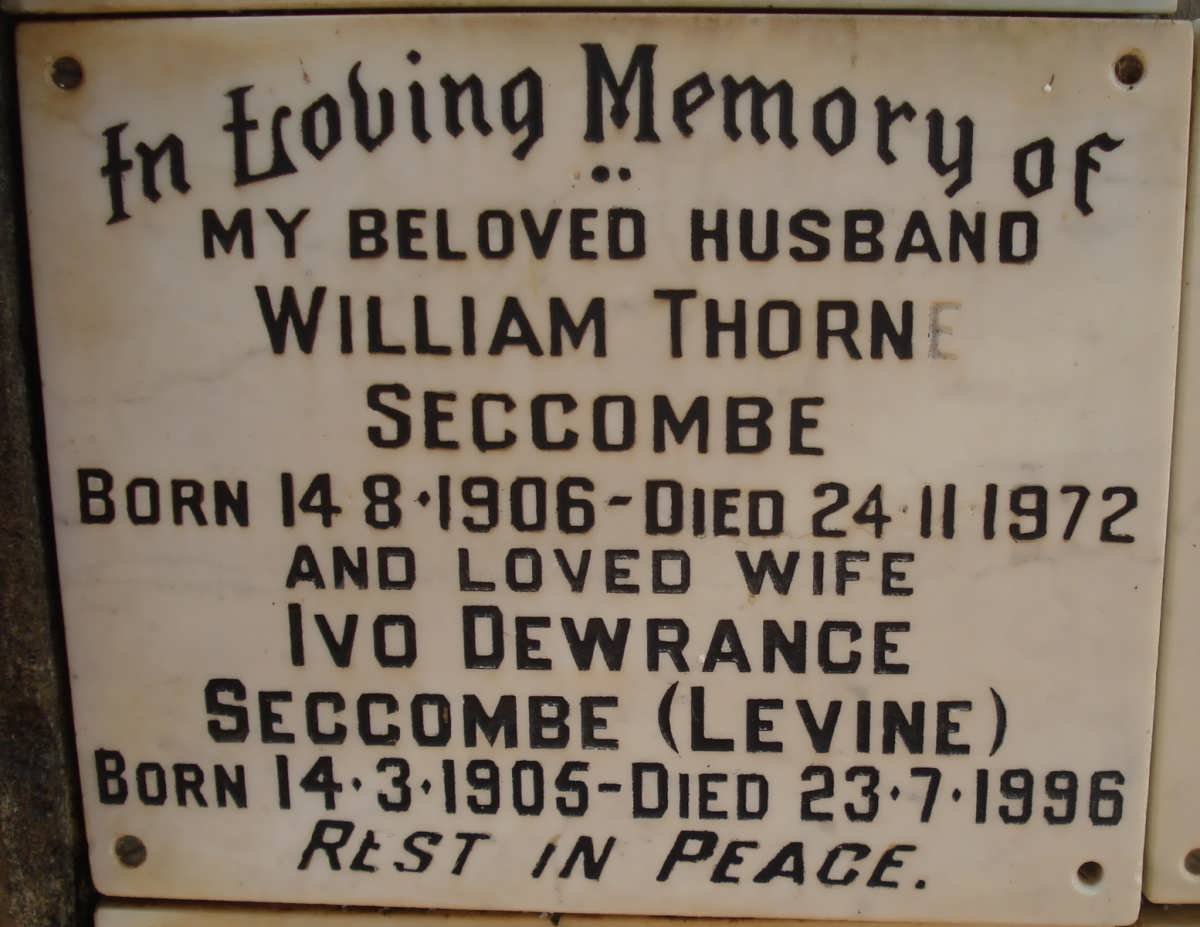 In Loving Memory of
MY BELOVED HUSBAND
WILLIAM THORNE
SECCOMBE
BORN 14 8·1906-DIED 24·11 1972
AND LOVED WIFE
IVO DEWRANCE
SECCOMBE (LEVINE)
BORN 14·3·1905-DIED 23·7·1996
REST IN PEACE.